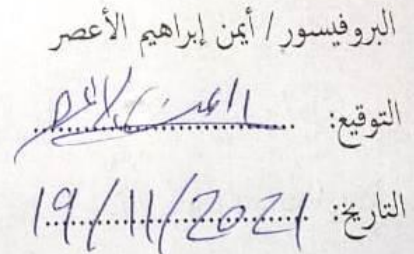 البروفيسور / أيمن إبراهيم الأعصر
التوقيع:
التاريخ: 19/11/2021